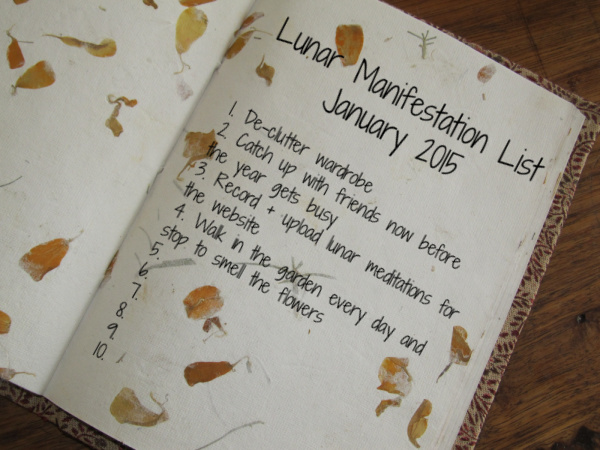 Lunar Manifestation List
January 2015
1. De-clutter wardrobe
2. Catch up with friends now before
the year gets busy
3. Record + upload lunar meditations for
the website
4. Walk in the garden every day and
stop to smell the flowers
5.
6.
7.
8.
9.
10.